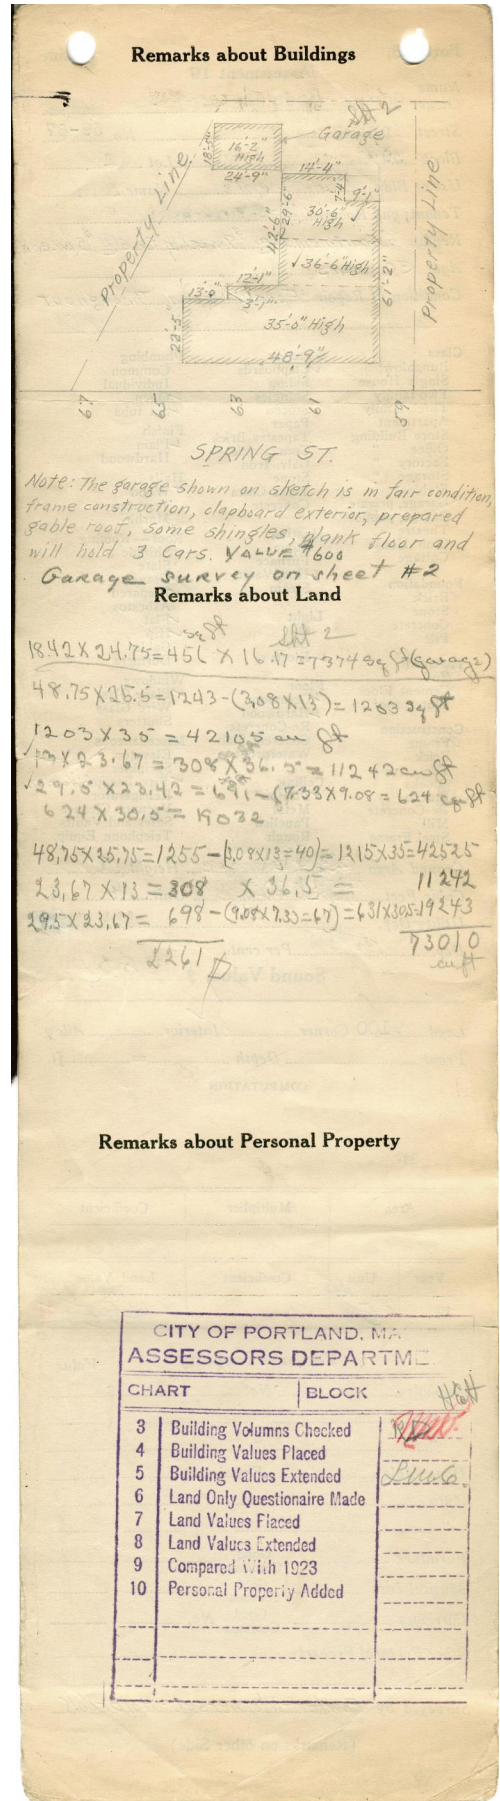 Remarks about Buildings
Sht 2
Garage
18'-5"
16'-2"
High
24'-9"
14'-4"
7'-4"
9'-1"
29'-6"
30'-6"
High
42'-6"
√36'-6" High
61'-2"
12'-1"
13'-0"
3'-1"
23'-5"
35'-0" High
48'-9"
Property Line
Property Line
67 65 63 61 59
SPRING ST.
Note: The garage shown on sketch is in fair condition,
frame construction, clapboard exterior, prepared
gable roof, some shingles, plank floor and
will hold 3 Cars. VALUE $600
Garage survey on sheet #2
Remarks about Land
sq ft Sht 2
18.42 X 24.75=456 X 16.17=7374 sq ft (garage)
48.75X25.5=1243-(3.08X13)=1203 sq ft
1203X35=42105 cu ft
√13X23.67=308X36.5=11242 cu ft
√29.5X23.42=691-(7.33X9.08=624 sq ft
624X30.5=19032
48.75X25.75=1255-(3.08X13=40)=1215X35=42525
23.67X13=308 X 36.5= 11242
29.5X23.67= 698-(9.08X7.33=67)=631X30.5=19243
2261 73010
cu ft
Remarks about Personal Property
CITY OF PORTLAND, MA
ASSESSORS DEPARTME
CHART BLOCK
HEH
3 Building Volumns Checked
4 Building Values Placed
5 Building Values Extended
6 Land Only Questionaire Made
7 Land Values Placed
8 Land Values Extended
9 Compared With 1923
10 Personal Property Added